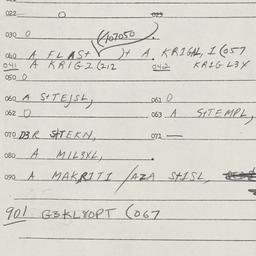 022 O 023
030 O (107050
040 A FLAST )+ A. KRIGAL, I (057
041 A KRIGI (212 042 KRIGL3X
050 O
060 A S+TEJSL, 061 O
062 O 063 A S+TEMPL,
070 D3R S+TEKN, 071 —
080 A MIL3XL,
090 A MAKRITI / AZA S+ISL,
901 G3KL80PT (067